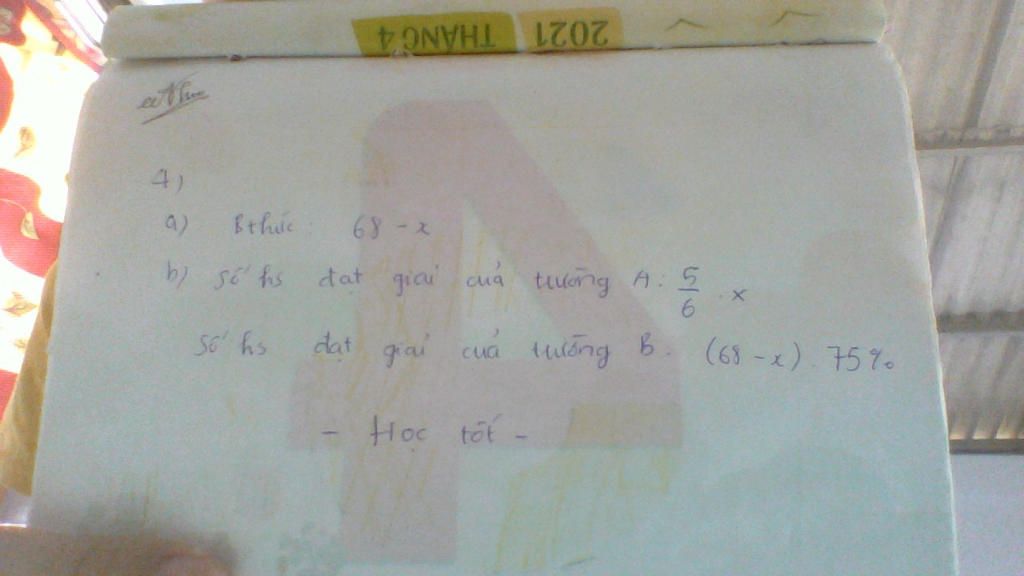 THÁNG 4 2021
4)
a) Bthức: 68 - x
b) Số hs đạt giải của trường A: 5/6 . x
Số hs đạt giải của trường B: (68 - x) . 75%
- Học tốt -